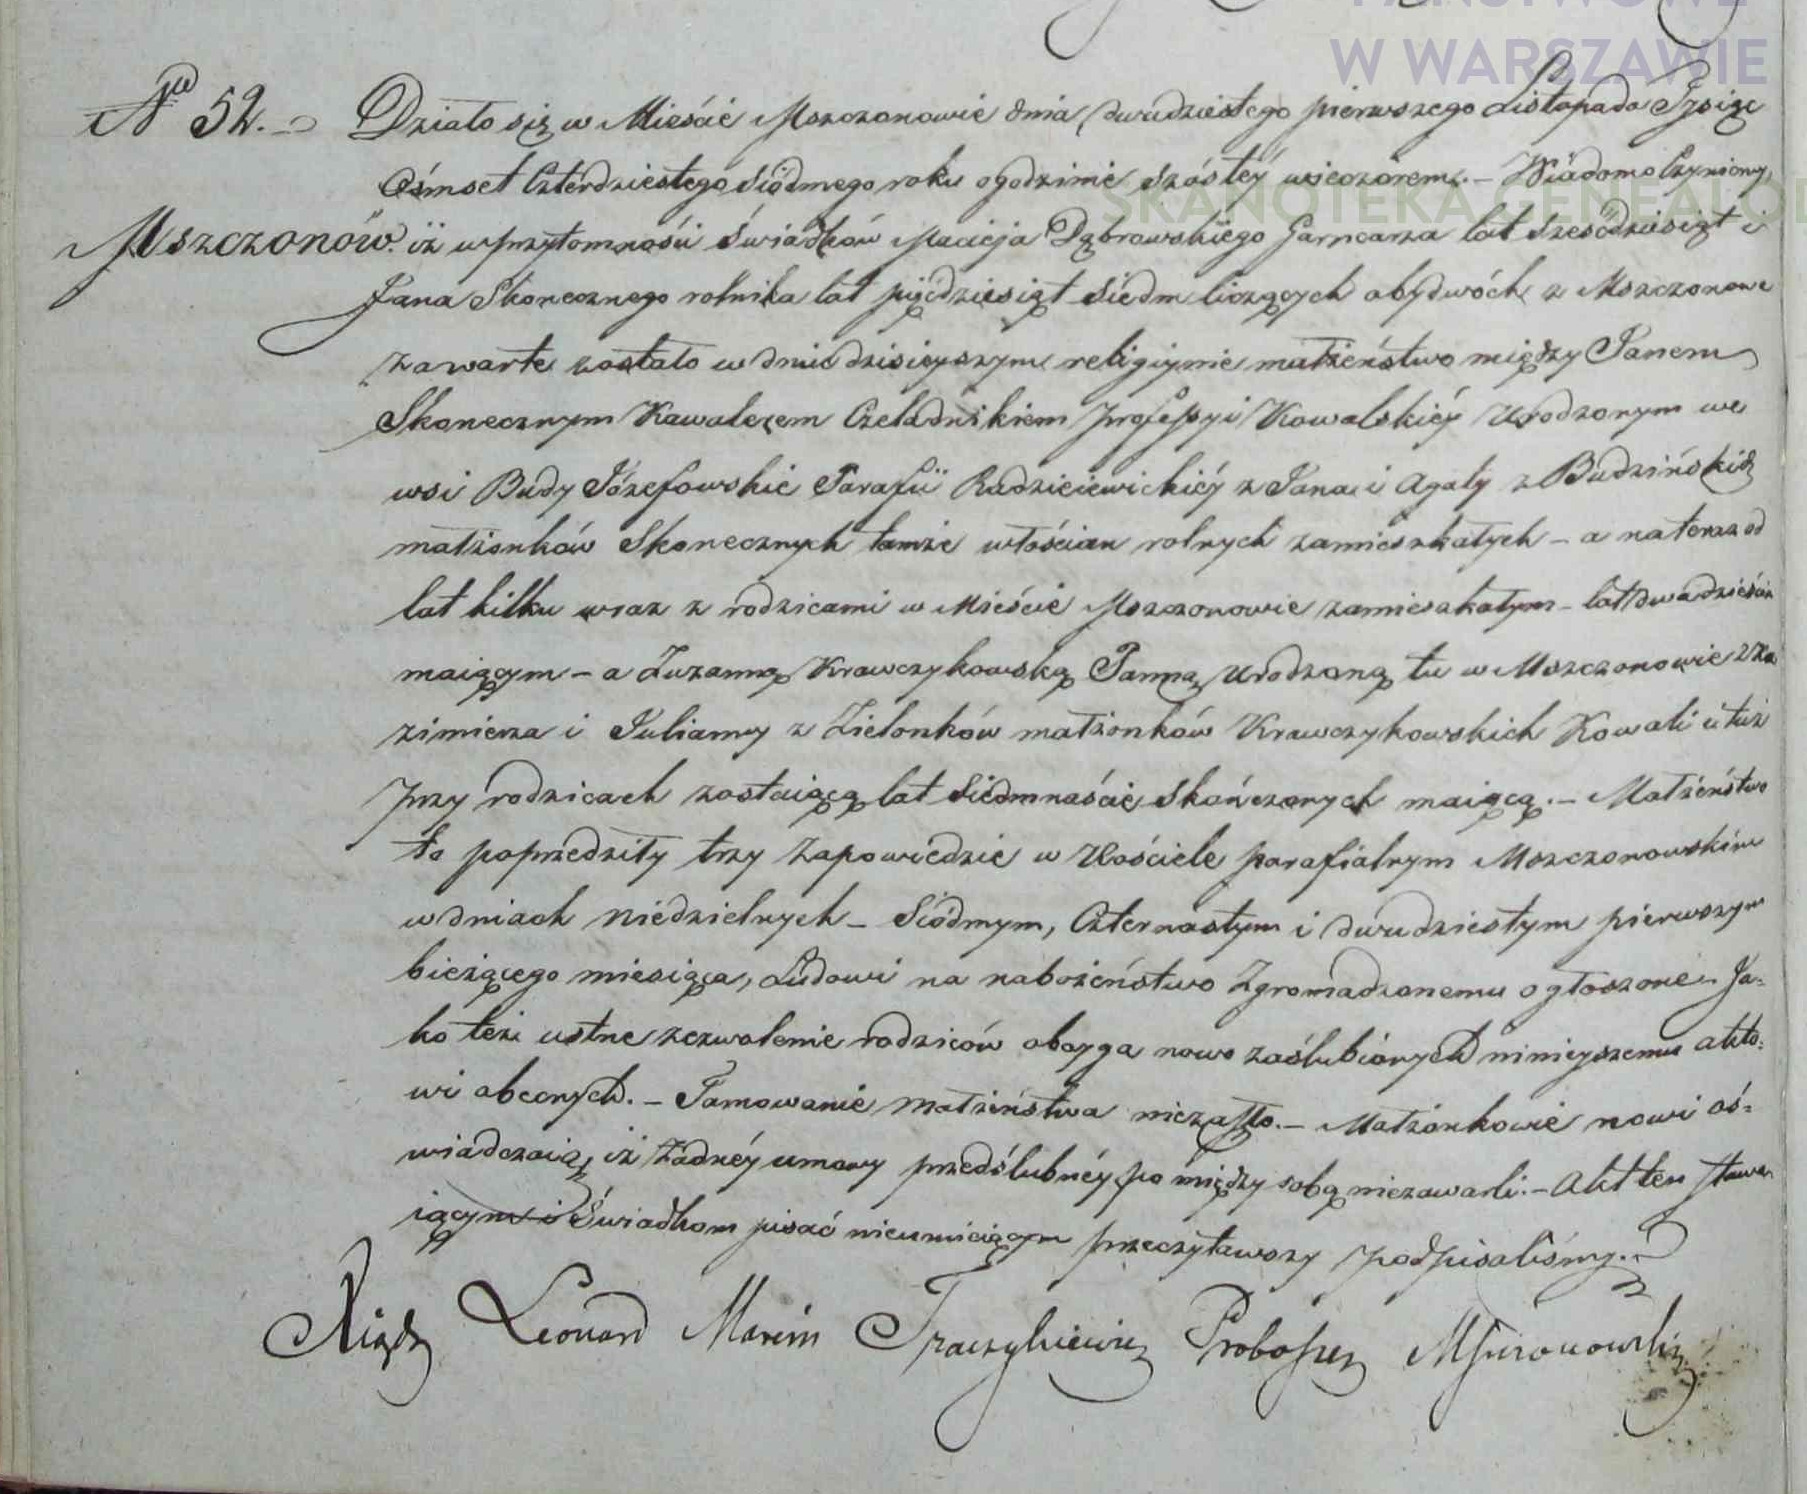 PAŃSTWOWE
W WARSZAWIE
SKANOTEKA GENEALOG
Nro 52. Działo się w Mieście Mszczonowie dnia dwudziestego pierwszego Listopada Tysiąc
Ośmset Czterdziestego Siódmego roku o godzinie szóstéy wieczorem. – Wiadomo Czyniemy,
Mszczonów. iż w przytomności Świadków Macieja Dąbrowskiego Garncarza lat sześćdziesiąt i
Jana Skonecznego rolnika lat pięćdziesiąt siedm liczących obydwóch z Mszczonowa
zawarte zostało w dniu dzisieyszym religiynie małżeństwo między Janem
Skonecznym Kawalerem Czeladnikiem professyi Kowalskiéy Urodzonym we
wsi Budy Józefowskie Parafii Radzieiewickiéy z Jana i Agaty z Budzińskich
małżonków Skonecznych tamże włościan rolnych zamieszkałych – a na teraz od
lat kilku wraz z rodzicami w Mieście Mszczonowie zamieszkałym – lat dwadzieścia
maiącym – a Zuzanną Krawczykowską Panną Urodzoną tu w Mszczonowie z Ka
zimierza i Julianny z Zielonków małżonków Krawczykowskich Kowali i tuż
przy rodzicach zostaiącą lat siedmnaście skończonych maiącą. – Małżeństwo
to poprzedziły trzy Zapowiedzie w Kościele parafialnym Mszczonowskim
w dniach Niedzielnych – Siódmym, Czternastym i dwudziestym pierwszym
bieżącego miesiąca, Ludowi na nabożeństwo Zgromadzonemu ogłoszone – Ja=
ko też ustne zezwolenie rodziców oboyga nowo zaślubionych ninieyszemu akto=
wi obecnych. – Tamowanie Małżeństwa niezaszło. – Małżonkowie nowi oś=
wiadczaią, iż żadnéy umowy przedślubnéy pomiędzy sobą niezawarli. – Akt ten stawa
iącym i Świadkom pisać nieumieiącym przeczytawszy podpisaliśmy.
Xiądz Leonard Marcin Traczykiewicz Proboszcz Mszczonowski